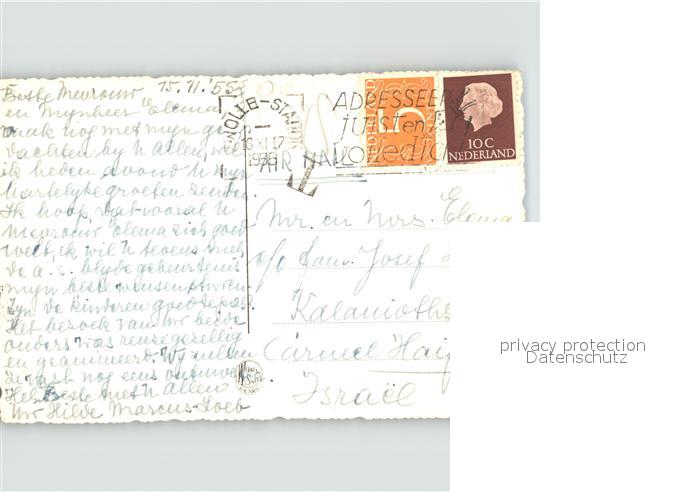 15.11.'55
Beste Mevrouw
en Mynheer Elema
vaak nog met myn ge
dachten by U Allen, wil
ik heden avond U myn
hartelyke groeten zenden
Ik hoop, dat vooral U
Mevrouw Elema zich goed
voelt, ik wil U tevens met
de a.s. blyde gebeurtenis
myn beste wensen sturen
Zyn de kinderen goed te pas?
Het bezoek van Uw beide
ouders was reuze gezellig
en geanimeerd. Wy zullen
ze vaak nog eens
Het Beste met U Allen
Uw Hilde Marcus-Loeb
ZWOLLE-STATION
16 XI 17
1955
ADRESSEER
JUIST en
volledig
NEDERLAND
5
10 C
NEDERLAND
AIR MAIL
T
Mr. en Mrs. Elema
c/o Fam. Josef
Kalanioths
Carmel Hai
Israël
privacy protection
Datenschutz